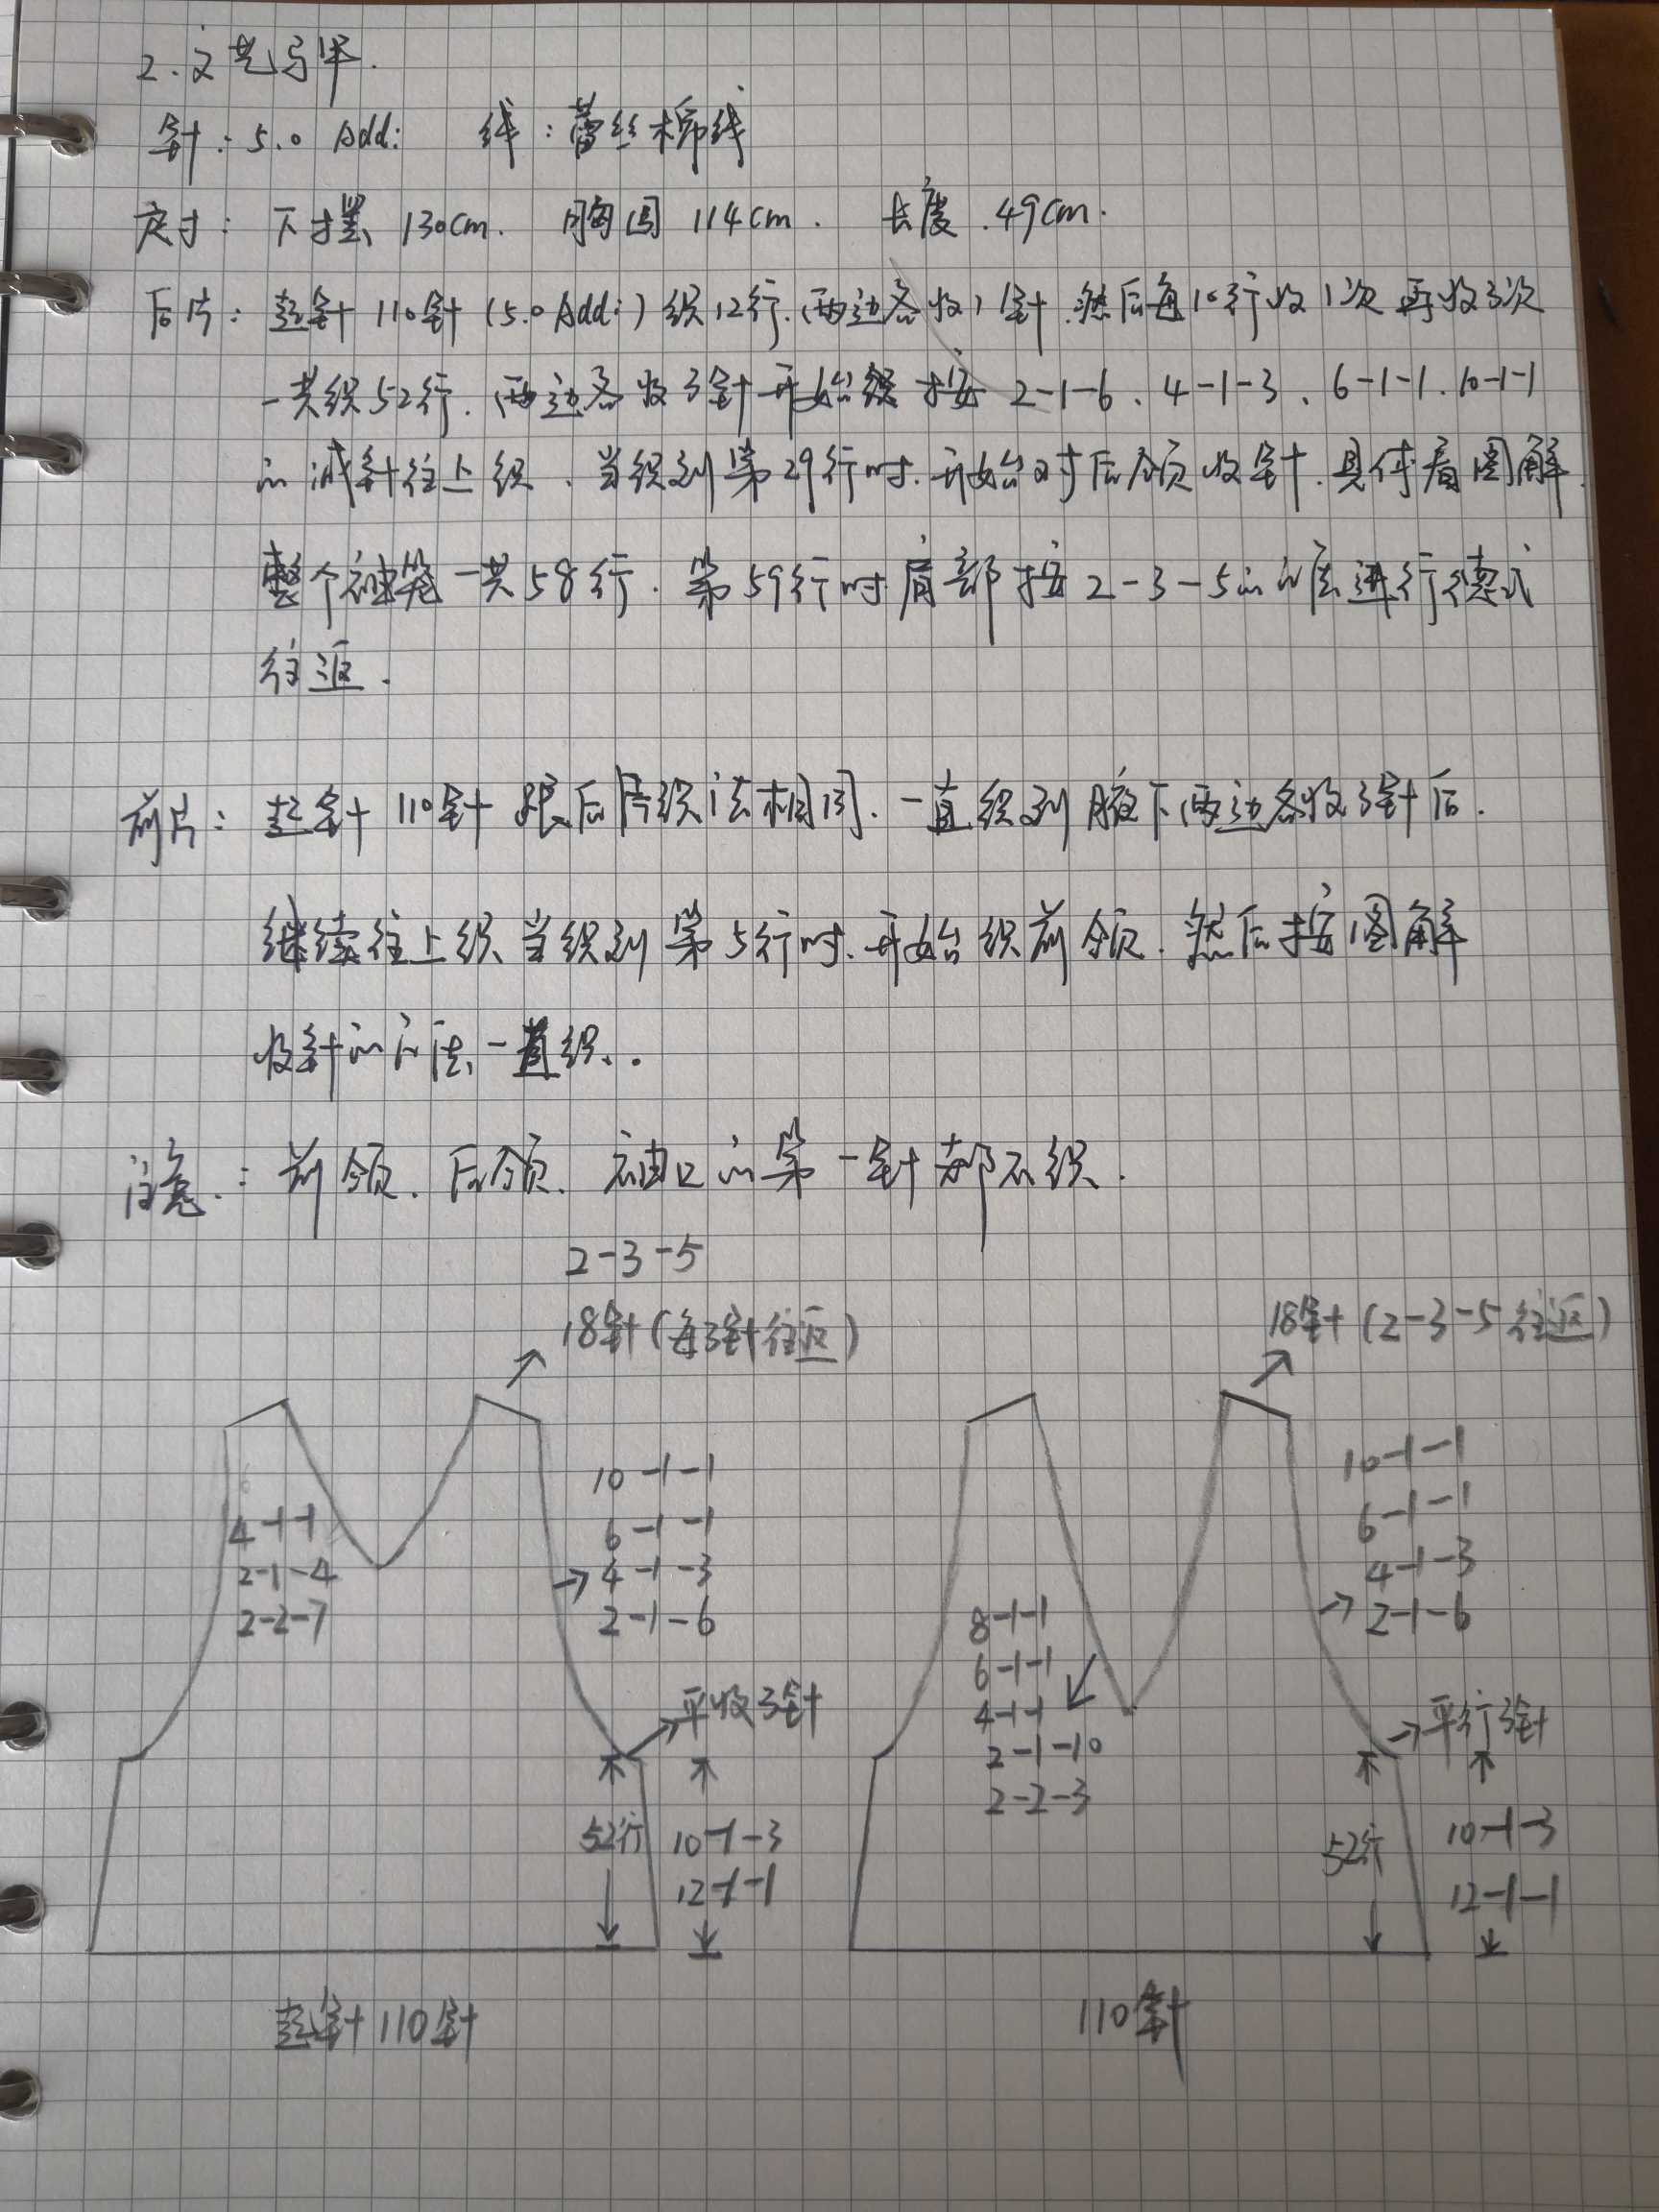 2.文艺马甲.
针:5.0 Addi 线:蕾丝棉线
尺寸: 下摆 130cm. 胸围 114cm. 长度.49cm.
后片: 起针 110针 (5.0 Addi) 织12行.两边各收1针.然后每10行收1次 再收3次
一共织52行.两边各收3针 开始织 按 2-1-6、4-1-3、6-1-1.10-1-1
的减针往上织、当织到第29行时.开始对后领收针.具体看图解.
整个袖笼一共58行.第59行时肩部按2-3-5的方法进行德式
往返.
前片: 起针 110针 跟后片织法相同.一直织到腋下两边各收3针后.
继续往上织 当织到第5行时.开始织前领.然后按图解
收针的方法一直织..
注意.: 前领.后领.袖口的第一针都不织.
2-3-5
18针(每3针往返)
18针(2-3-5往返)
4-1-1
2-1-4
2-2-7
10-1-1
6-1-1
4-1-3
2-1-6
平收3针
52行
10-1-3
12-1-1
8-1-1
6-1-1
4-1-1
2-1-10
2-2-3
10-1-1
6-1-1
4-1-3
2-1-6
平行3针
52行
10-1-3
12-1-1
起针110针
110针